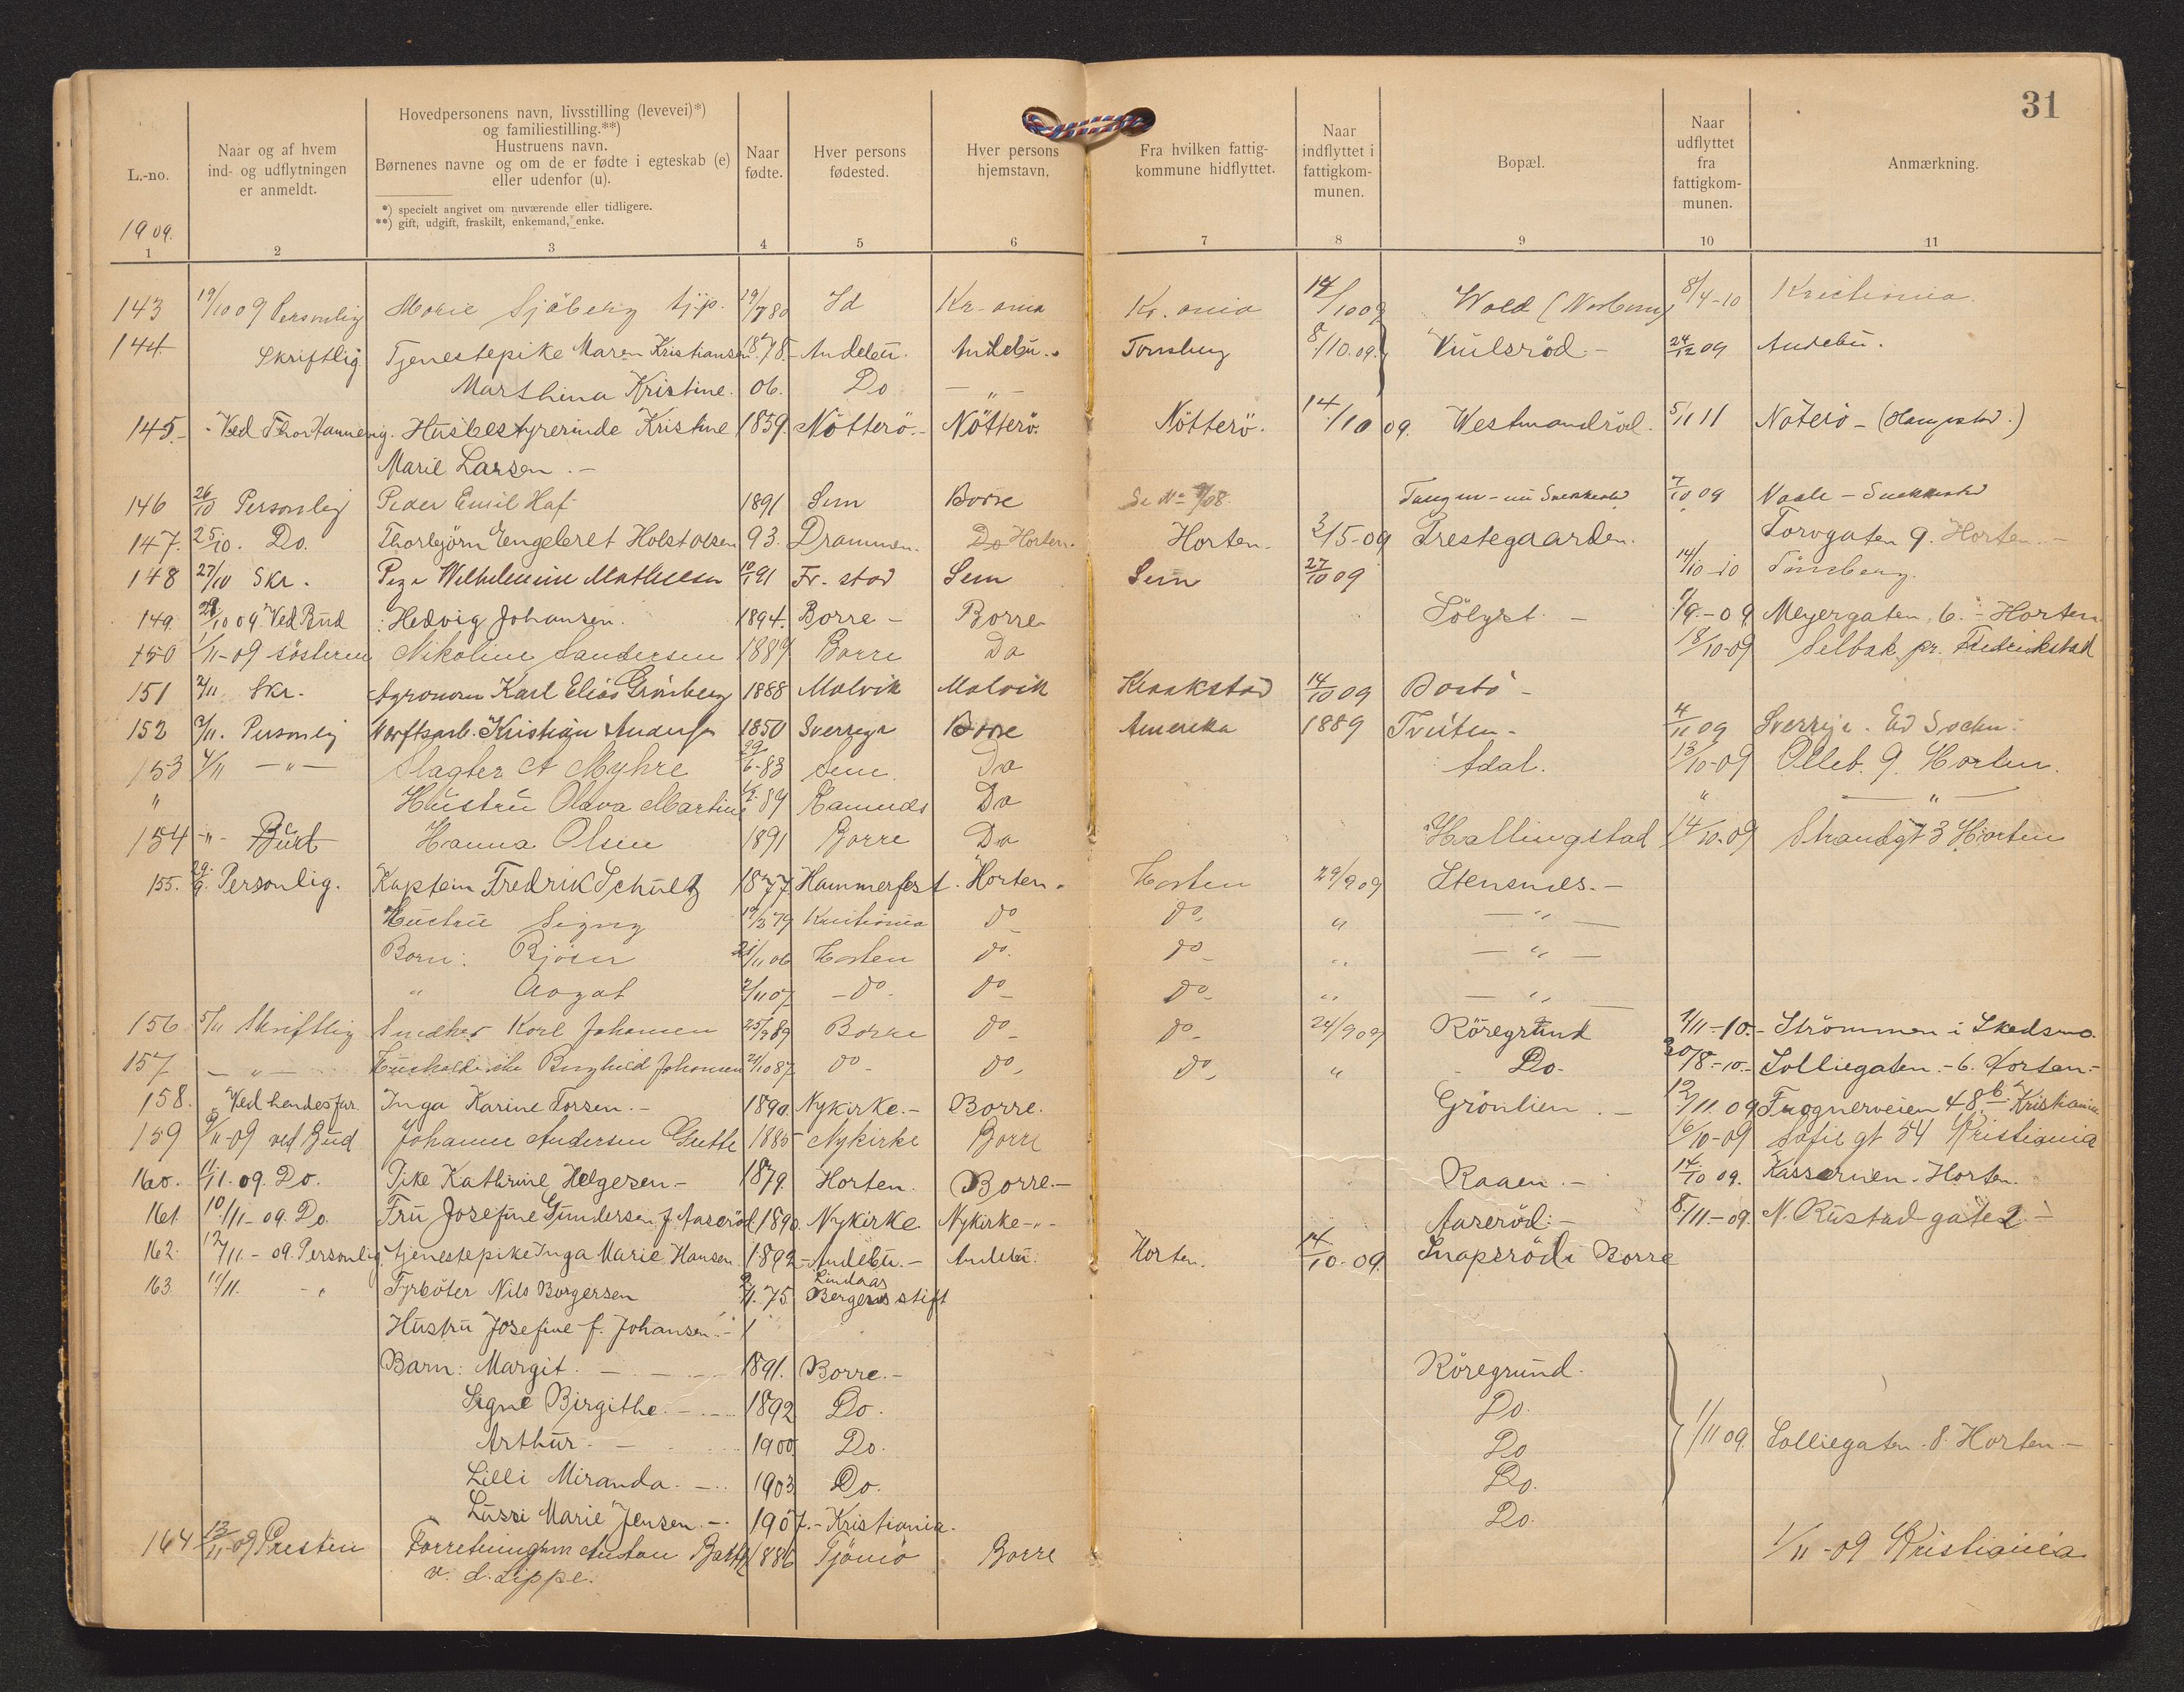 31
L.-no. | Naar og af hvem ind- og udflytningen er anmeldt. | Hovedpersonens navn, livsstilling (levevei)*) og familiestilling.**) Hustruens navn. Børnenes navne og om de er fødte i egteskab (e) eller udenfor (u). | Naar fødte. | Hver persons fødested. | Hver persons hjemstavn. | Fra hvilken fattigkommune hidflyttet. | Naar indflyttet i fattigkommunen. | Bopæl. | Naar udflyttet fra fattigkommunen. | Anmærkning.
*) specielt angivet om nuværende eller tidligere.
**) gift, udgift, fraskilt, enkemand, enke.
1909.
1 2 3 4 5 6 7 8 9 10 11
143 19/10 09 Personlig Marie Sjöberg tj.p. 19/7 80 Id Kr-ania Kr. ania 14/10 09 Wold 8/4-10 Kristiania
144 Skriftlig Tjenestepike Maren Kristiansen 1878 Andebu. Andebu. Tönsberg 8/10.09. 24/12 09 Andebu.
Marthina Kristine. 06. Do — „ —
145. Ved Thor Husbestyrerinde Kristine 1859. Nötterö. Nötterö. Nötterö. 14/10 09. Westmandröd. 5/11 11 Nöterö
Marie Larsen. –
146 26/10 Personlig Peder Emil Haf 1891 Sem Borre Se No 9/08. 7/10 09 Vaale
147. 25/10. Do. Thorbjörn Engebret Holst Olsen 93. Drammen. Do Horten. Horten. 3/5-09 Prestegaarden. Torvgaten 9. Horten. –
148 27/10 Skr. Wilhelmine Mathisen 10/1 91 Fr. stad Sem Sem 27/10 09 14/10-10 Tönsberg.
149. 29/10 09 Ved Bud Hedvig Johansen. 1894. Borre – Borre Sölyst. – 1/9-09 Meyergaten. 6. – Horten
150 1/11-09 søsteren Nikoline Sandersen 1889 Borre Do 18/10-09 Selbak pr. Fredrikstad
151 2/11 Skr. Agronom Karl Elias Grönberg 1888 Malvik Malvik Kraakstad 14/10 09 Bastö –
152 3/11. Personlig Værftsarb. Kristian Andersen 1850 Sverige Borre Amerika 1889 Tveiten – 4/11 09 Sverrige.
153 4/11 — „ — Slagter A Myhre 29/6-83 Sem Do Adal. 13/10-09 Olleb. 9. Horten.
„ Hustru Olava Martine 84 Ramnes Do „ — „ —
154 – „ – Bud Hanna Olsen 1891 Borre Do Hallingstad 14/10-09 Strandgt 3 Horten
155. 29/9. Personlig. Kaptein Fredrik Schultz 1877 Hammerfest. Horten. Horten 29/9 09 Stensnes. –
Hustru Signy 19/3 79 Kristiania do do „ — „ —
Born: Bjørn 21/11 06 Horten do. do „ — „ —
„ Aagot 2/11 07 – do. do do „ — „ —
156 5/11 Skriftlig Snedker Karl Johansen 25/9 89 Borre do do 24/9 09 Röregrund 1/11-10. – Strömmen i Skedsmo.
157 — „ — Borghild Johansen 21/10 87 do do do „ Do. 30/8-10. – Solliegaten. – 6. Horten. –
158. Ved hendes far. Inga Karine Torsen. – 1890. Nykirke. – Borre. Grönlien. – 12/11. 09 Frognerveien 48 b Kristiania
159 9/11-09 ved Bud Johanne Andersen 1885 Nykirke Borre 16/10-09 Sofie gt 54 Kristiania
160. 11/11. 09. Do. Pike Kathrine Helgesen – 1879. Horten. Borre. – Raaen. – 14/10 09. Kassernen. Horten.
161 10/11-09. Do. Fru Josefine Gundersen f. Aaseröd. 1890. Nykirke. Nykirke – „ – Aareröd. – 8/11-09. N. Rustad gate 2 –
162. 12/11. – 09. Personlig. Tjenestepike Inga Marie Hansen. 1892 – Andebu. – Andebu. Horten. 14/10-09. Snapsröd i Borre
163. 11/11. – „ Fyrböter Nils Borgersen 2/11. 75 Lindaas Bergens stift
Hustru Josefine f. Johansen. –
Barn: Margit. — 1891. Borre. – Röregrund.
Signe Birgithe. — 1892 Do. Do.
Arthur. — 1900 Do. Do 1/11 09. Solliegaten. 8. Horten –
Lilli Miranda. — 1903 Do. Do.
Lussi Marie Jensen. – 1907. – Kristiania. Do.
164 13/11-09 Presten Anton 1886 Tjömö Borre 1/11-09 Kristiania
v. d. Lippe.